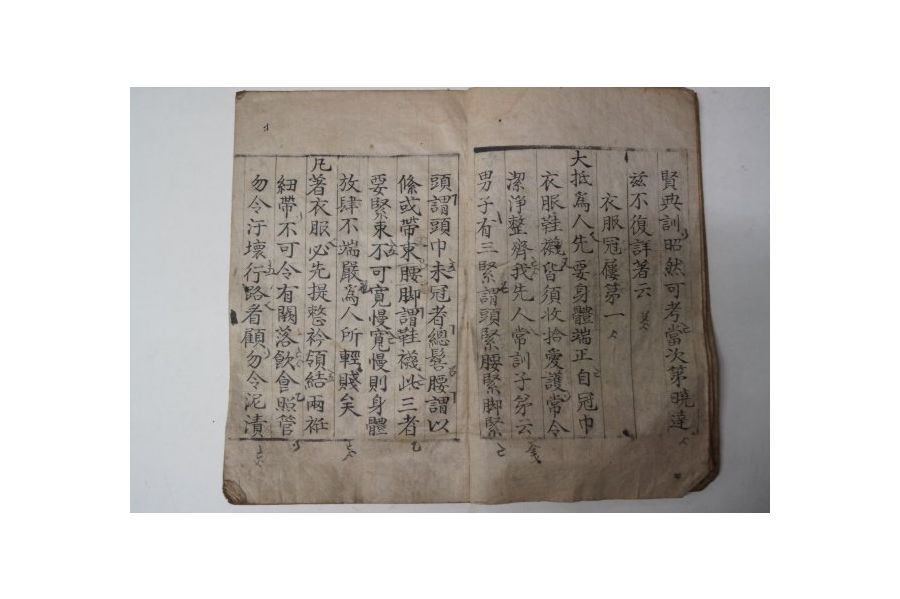 賢典訓昭然可考當次第曉達
玆不復詳著云
衣服冠屨第一
大抵為人先要身體端正自冠巾
衣服鞋襪皆須收拾愛護常令
潔淨整齊我先人常訓子弟云
男子有三緊謂頭緊腰緊脚緊
頭謂頭巾未冠者總髻腰謂以
絛或帶束腰脚謂鞋襪此三者
要緊束不可寬慢寬慢則身體
放肆不端嚴為人所輕賤矣
凡著衣服必先提整衿領結兩袵
紐帶不可令有闕落飲食照管
勿令汙壞行路看顧勿令泥漬